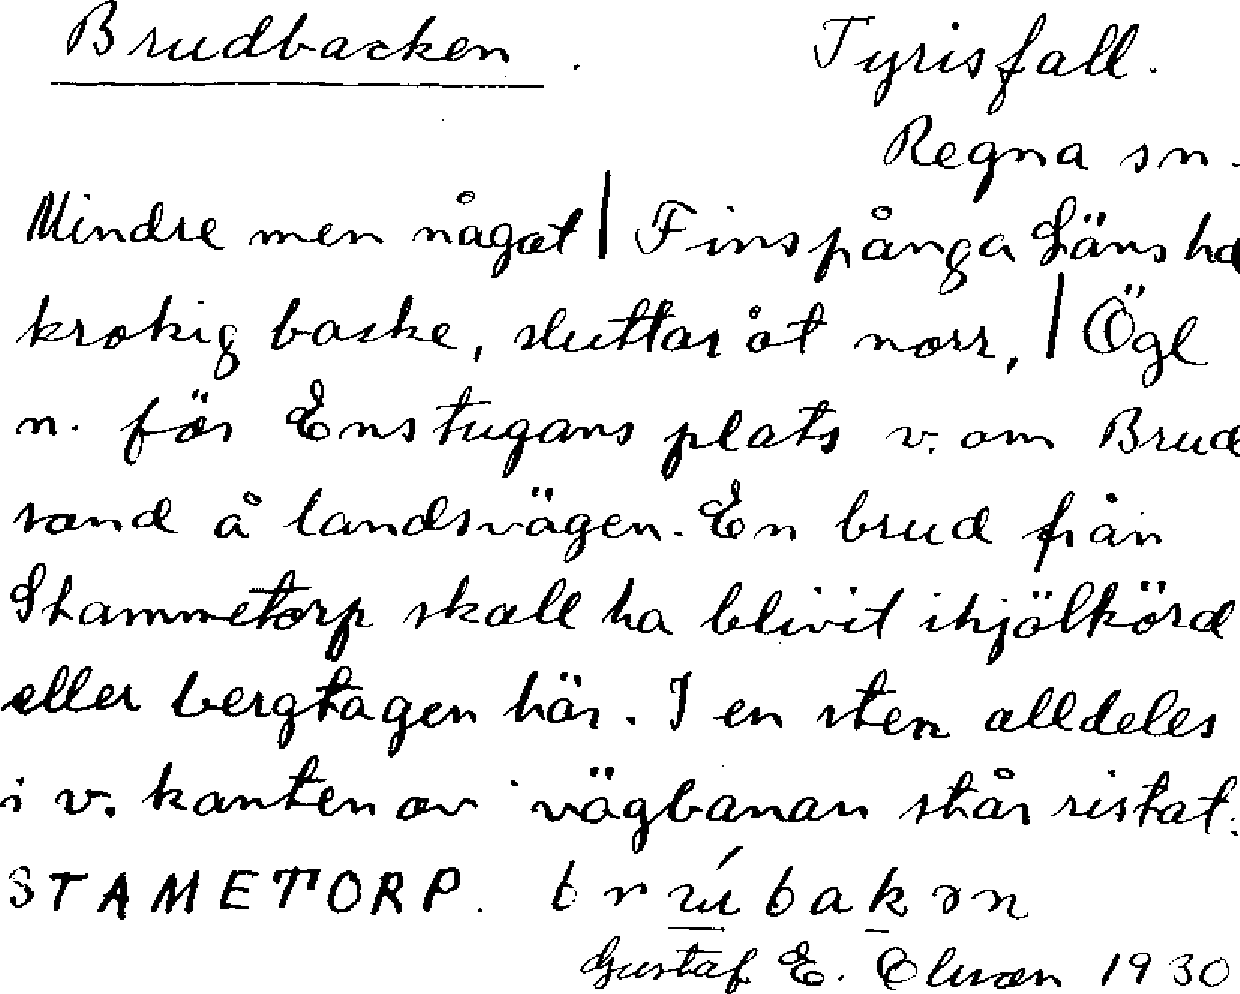 Brudbacken. Tyrisfall.
Regna sn.
Mindre men något | Finspånga Läns hd
krokig backe, sluttar åt norr, | Ögl
n. för Enstugans plats v. om Brud
rand å landsvägen. En brud från
Stammetorp skall ha blivit ihjälkörd
eller bergtagen här. I en sten alldeles
i v. kanten av vägbanan står ristat:
STAMETORP.
Gustaf E. 1930